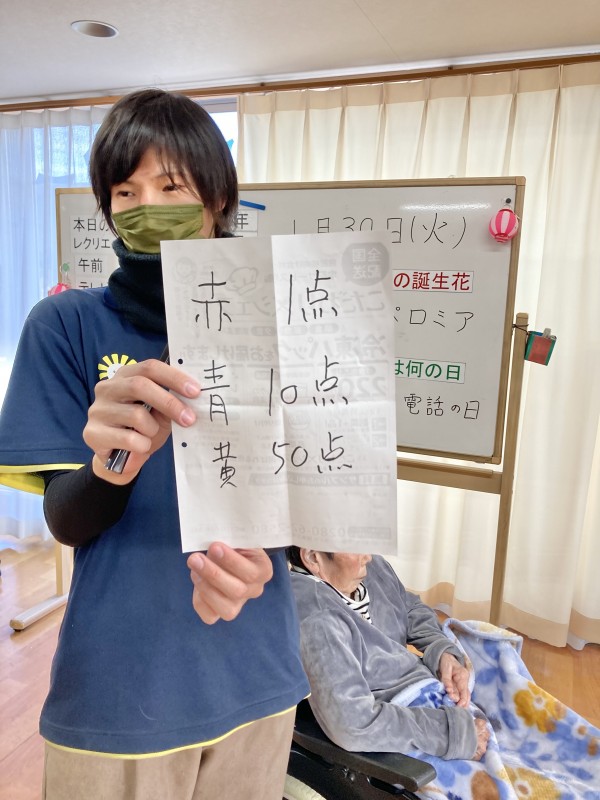 本日の
レクリエ
午前
年
1月30日(火)
の誕生花
ペロミア
は何の日
電話の日
赤 1点
青 10点
黄 50点
全国
配送